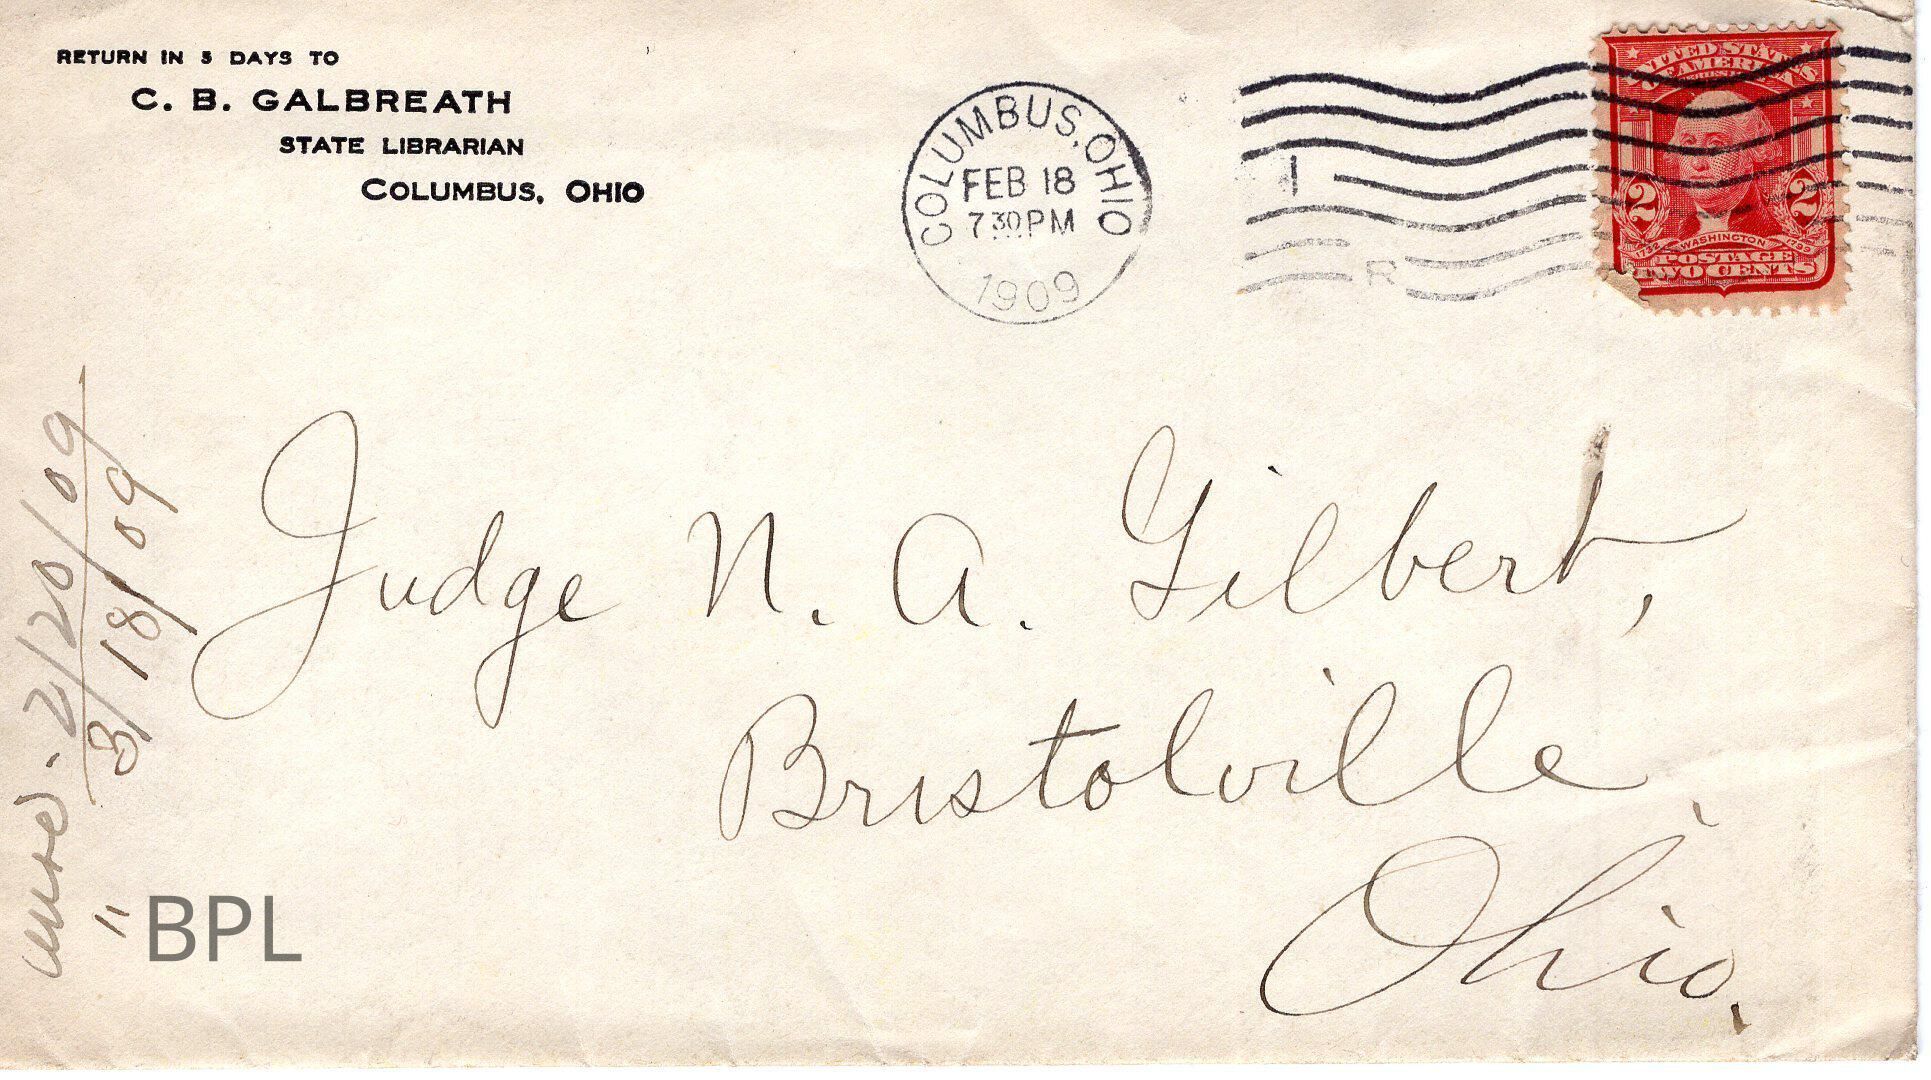 RETURN IN 5 DAYS TO
C. B. GALBREATH
STATE LIBRARIAN
COLUMBUS, OHIO
COLUMBUS, OHIO
FEB 18
7 30 PM
1909
1
R
UNITED STATES
OF AMERICA
2 2
1732 WASHINGTON 1799
POSTAGE
TWO CENTS
Judge N. A. Gilbert,
Bristolville,
Ohio.
2/20/09
" 3/18/09
BPL